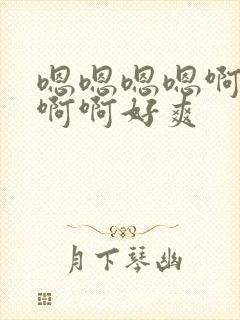 嗯嗯嗯嗯啊
啊啊好爽
月下琴幽